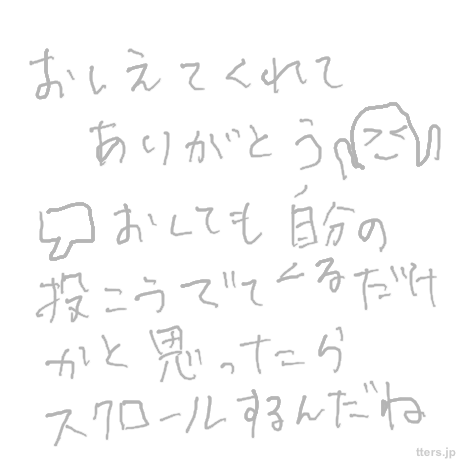 おしえてくれて
ありがとう
おしても自分の
投こうでてくるだけ
かと思ったら
スクロールするんだね
tters.jp